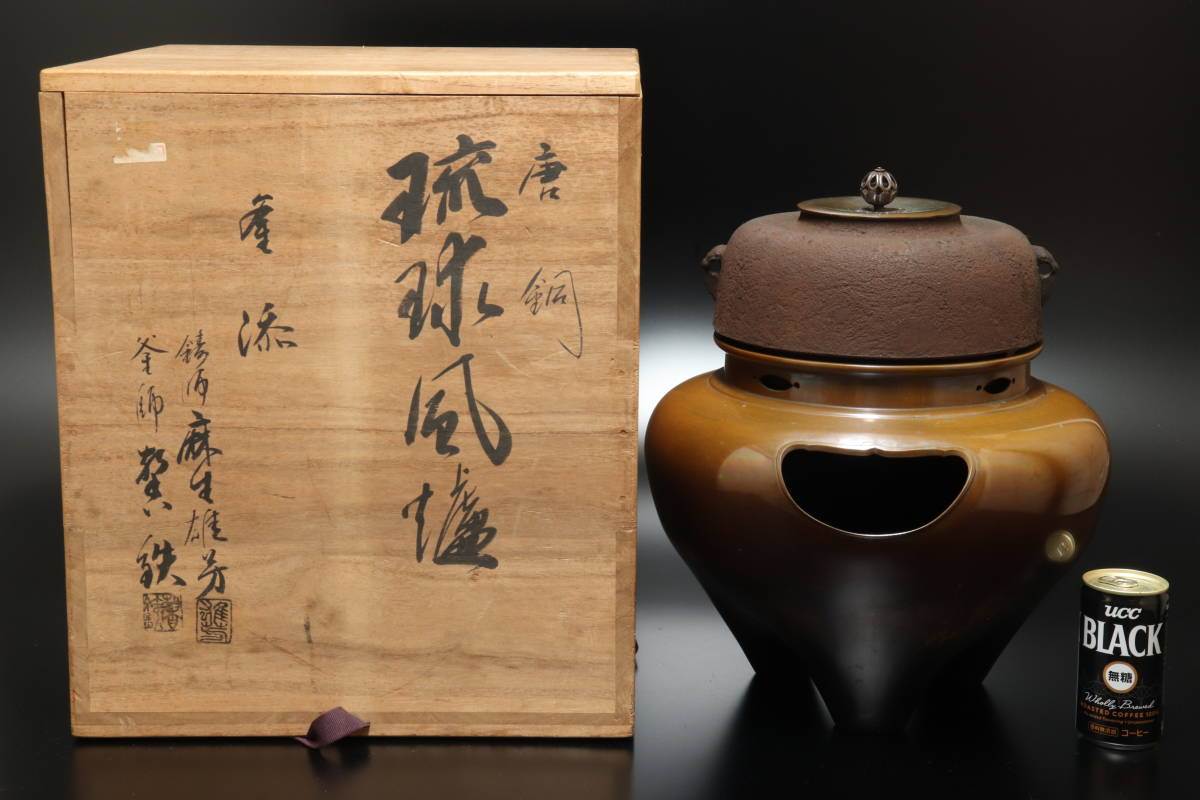 唐銅
琉球風爐
釜添
鋳師 麻生雄芳
釜師
鉄
ucc
BLACK
無糖
Wholly Brewed
ROASTED COFFEE 100%
コーヒー